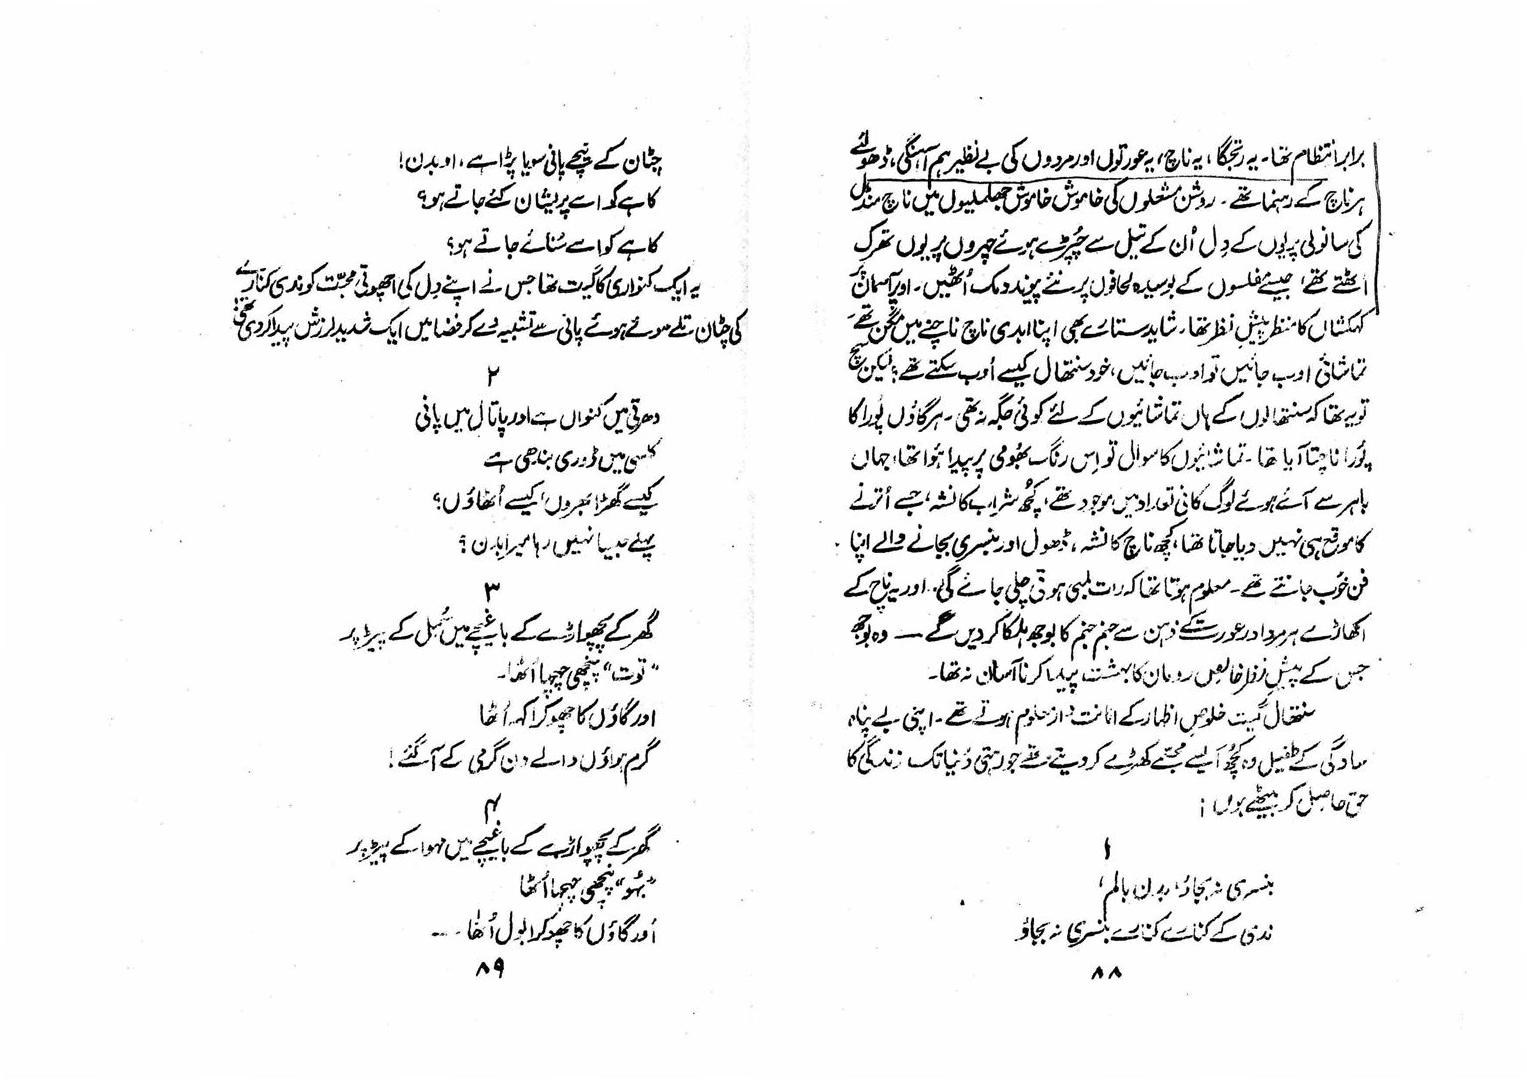 برابر انتظام تھا۔ یہ رتجگا، یہ ناچ، یہ عورتوں اور مردوں کی بے نظیر ہم آہنگی، ڈھولئے
ہر ناچ کے رہنما تھے۔ روشن مشعلوں کی خاموش خاموش جھلملیوں میں ناچ منڈل
کی سانولی پریوں کے دل اُن کے تیل سے چُپڑے ہوئے چہروں پر یوں تھرک
اٹھتے تھے، جیسے مفلسوں کے بوسیدہ لحافوں پر نئے پیوند دمک اُٹھیں۔ اور آسمان پر
کہکشاں کا منظر پیشِ نظر تھا۔ شاید ستارے بھی اپنا ابدی ناچ ناچنے میں مگن تھے۔
تماشائی اوب جائیں تو اوب جائیں، خود سنتھال کیسے اُوب سکتے تھے؟ لیکن سچ
تو یہ تھا کہ سنتھالوں کے ہاں تماشائیوں کے لئے کوئی جگہ نہ تھی۔ ہر گاؤں پُورا کا
پُورا ناچتا آیا تھا۔ تماشائیوں کا سوال تو اِس رنگ بھومی پر پیدا ہوا تھا، جہاں
باہر سے آئے ہوئے لوگ کافی تعداد میں موجود تھے، کچھ شراب کا نشہ، جسے اُترنے
کا موقع ہی نہیں دیا جاتا تھا، کچھ ناچ کا نشہ، ڈھول اور بنسری بجانے والے اپنا
فن خُوب جانتے تھے۔ معلوم ہوتا تھا کہ رات لمبی ہوتی چلی جائے گی۔ اور یہ ناچ کے
اکھاڑے ہر مرد اور عورت کے ذہن سے جنم جنم کا بوجھ ہلکا کر دیں گے — وہ بوجھ
جس کے پیشِ نظر خالص رومان کا بہشت پیدا کرنا آسان نہ تھا۔
سنتھال گیت خلوصِ اظہار کے امانت دار معلوم ہوتے تھے۔ اپنی بے پناہ
سادگی کے طفیل وہ کچھ ایسے مجسّمے کھڑے کر دیتے تھے جو رہتی دُنیا تک زندگی کا
حق حاصل کر بیٹھے ہوں؛
۱
بنسری نہ بجاؤ، بالم،
ندی کے کنارے کنارے بنسری نہ بجاؤ
۸۸
چٹان کے نیچے پانی سویا پڑا ہے، او بدن!
کاہے کو اسے پریشان کئے جاتے ہو؟
کاہے کو اسے سُنائے جاتے ہو؟
یہ ایک کنواری کا گیت تھا جس نے اپنے دِل کی اچھوتی محبّت کو ندی کنارے
کی چٹان تلے سوئے ہوئے پانی سے تشبیہ دے کر فضا میں ایک شدید لرزش پیدا کر دی تھی
۲
دھرتی میں کنواں ہے اور پاتال میں پانی
کلسی میں ڈوری بندھی ہے
کیسے گھڑا بھروں، کیسے اُٹھاؤں؟
پہلے جیسا نہیں رہا میرا بدن؟
۳
گھر کے پچھواڑے کے باغیچے میں سُمبل کے پیڑ پر
"توت" پنچھی چہچہا اُٹھا۔
اور گاؤں کا چھوکرا کہہ اُٹھا
گرم ہواؤں والے دن گرمی کے آ گئے!
۴
گھر کے پچھواڑے کے باغیچے میں مہوا کے پیڑ پر
"بہُو" پنچھی چہچہا اُٹھا
اور گاؤں کا چھوکرا بول اُٹھا۔ --
۸۹